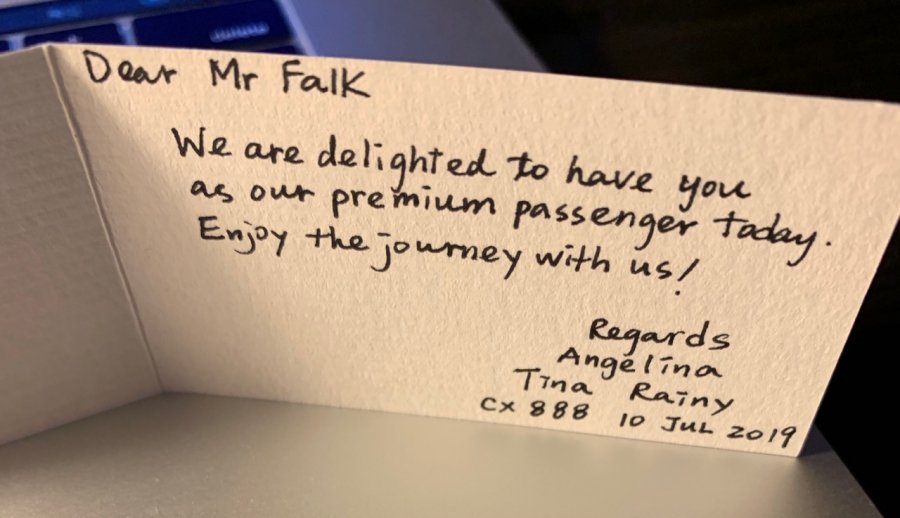 Dear Mr Falk
We are delighted to have you
as our premium passenger today.
Enjoy the journey with us!
Regards
Angelina
Tina Rainy
CX 888 10 JUL 2019